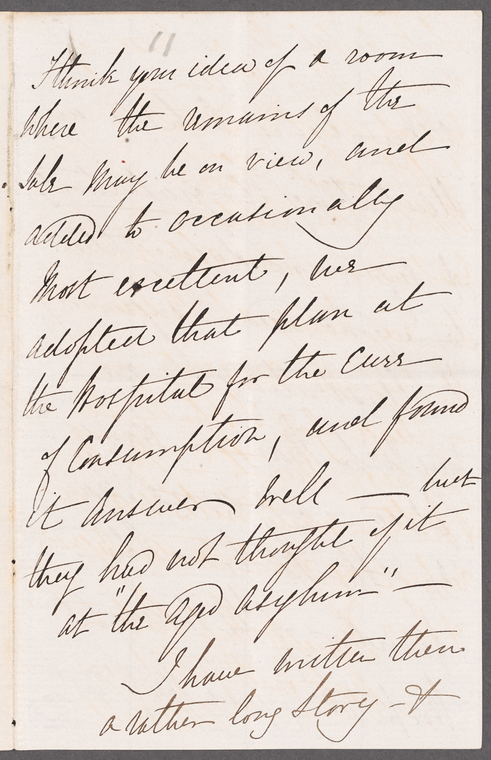 I think your idea of a room
where the remains of the
Sale may be on view, and
added to occasionally
Most excellent, we
adopted that plan at
the Hospital for the Cure
of Consumption, and found
it answer well — but
they had not thought of it
at "the Aged Asylum" —
I have written them
a rather long Story - &